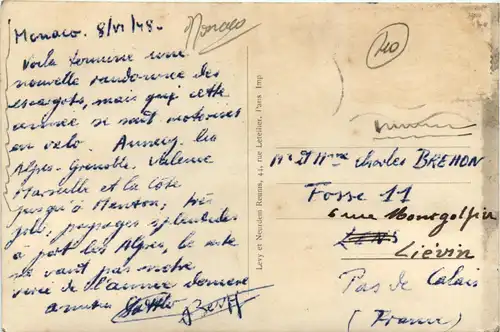 Monaco. 8/VI/48.
Monaco
40
Voila terminé une
nouvelle randonnée des
escargots, mais qui cette
année se sont motorisés
en velo. Annecy. les
Alpes. Grenoble. Valence
Marseille et la Côte
jusqu'à Menton; très
joli, paysages splendides
à part les Alpes, le reste
ne vaut pas notre
virée de l'année dernière
Levy et Neurdein Réunis, 44, rue Letellier, Paris Imp.
Mr et Mme Charles BREHON
Fosse 11
6 rue Montgolfier
LENS
Liévin
Pas de Calais
(France)